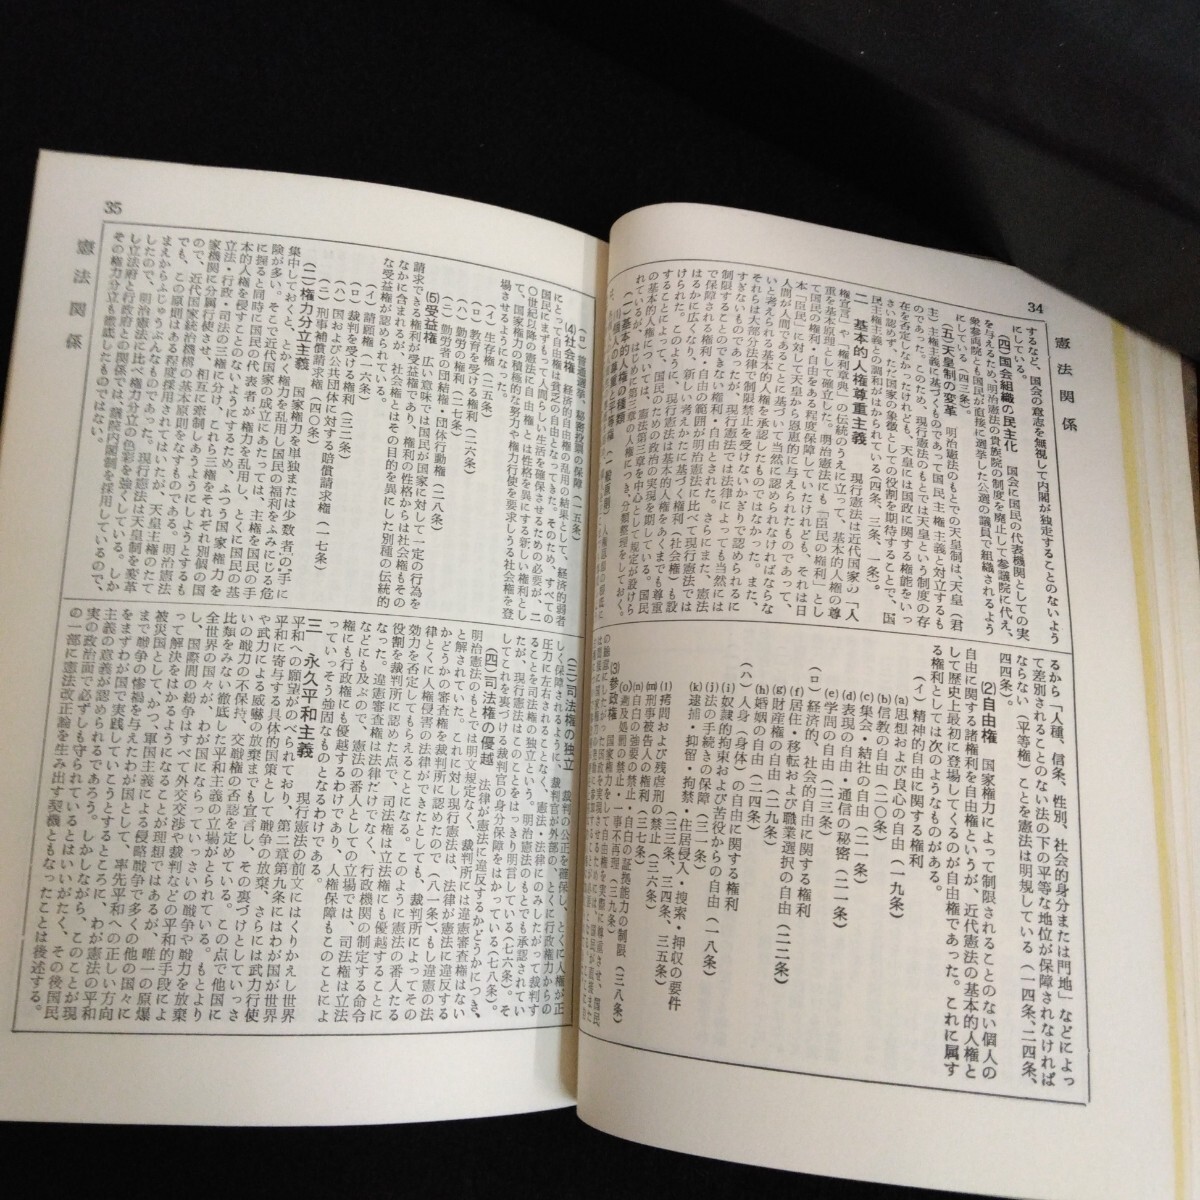 34
憲法関係
するなど、国会の意思を無視して内閣が独走することのないよう
にしている。
(四)国会組織の民主化　国会に国民の代表機関としての実
を与えるため、明治憲法の貴族院の制度を廃止して参議院に代え、
衆参両院とも国民が直接に選挙した公選の議員で組織されるよう
にしている（四三条）。
(五)天皇制の変革　明治憲法のもとでの天皇制は、天皇（君
主）主権主義に基づくものであって国民主権主義と対立するも
のであった。このため、現行憲法のもとでは天皇という制度の存
在を否定しなかったけれども、天皇には国政に関する権能をいっ
さい認めず、ただ国家の象徴としての役割を期待することで、国
民主権主義との調和がはかられている（四条、三条、一条）。
二　基本的人権尊重主義　現行憲法は近代国家の「人
権宣言」や「権利章典」の伝統のうえに立って、基本的人権の尊
重を基本原理として確立した。明治憲法にも「臣民の権利」とし
て国民の権利・自由をある程度保障していたけれども、それは日
本「臣民」に対して天皇から恩恵的に与えられたものであって、
人間が人間であることに基づいて当然に認められなければならな
いと考えられる基本的人権を承認したものではなかった。また、
それらは大部分法律で制限禁止を受けないかぎりで認められるに
すぎないものであったが、現行憲法では法律によっても当然には
制限することのできない権利・自由とされた。さらにまた、憲法
で保障される権利・自由の範囲が明治憲法に比べて現行憲法では
はるかに広くなり、新しい考えかたに基づく権利（社会権）も設
けられた。このように、現行憲法は基本的人権をあくまでも尊重
することによって、国民のための政治の実現を期している。国民
の基本的人権については、憲法第三章を中心として規定が設けら
れているが、はじめに第三章の人権につき、分類整理をしておく。
(一)基本的人権の種類
るから「人種、信条、性別、社会的身分または門地」などによっ
て差別されることのない法の下の平等な地位が保障されなければ
ならない（平等権）ことを憲法は明規している（一四条、二四条、
四四条）。
(2)自由権　国家権力によって制限されることのない個人の
自由に関する諸権利を自由権というが、近代憲法の基本的人権と
して歴史上最初に登場してくるのが自由権であった。これに属す
る権利としては次のようなものがある。
(イ)精神的自由に関する権利
(a)思想および良心の自由（一九条）
(b)信教の自由（二〇条）
(c)集会・結社の自由（二一条）
(d)表現の自由・通信の秘密（二一条）
(e)学問の自由（二三条）
(ロ)経済的、社会的自由に関する権利
(f)居住・移転および職業選択の自由（二二条）
(g)財産権の自由（二九条）
(h)婚姻の自由（二四条）
(ハ)人身（身体）の自由に関する権利
(i)奴隷的拘束および苦役からの自由（一八条）
(j)法の手続きの保障（三一条）
(k)逮捕・抑留・拘禁・住居侵入・捜索・押収の要件
（三三条、三四条、三五条）
(l)拷問および残虐刑の禁止（三六条）
(m)刑事被告人の権利（三七条）
(n)自白の強要の禁止・自白の証拠能力の制限（三八条）
(o)遡及処罰の禁止・一事不再理（三九条）
(3)参政権
35
憲法関係
(ロ)普通選挙、秘密投票の保障（一五条）
(4)社会権　経済的自由権の乱用の結果として、経済的弱者
にとって自由権は貧乏の自由となってきた。そのため、すべての
国民にまずもって人間らしい生活を確保させるための必要が、二
〇世紀以降の憲法に自由権とは性格を異にする新しい権利とし
て、国家権力の積極的な努力や権力行使を要求しうる社会権を登
場させるようになった。
(イ)生存権（二五条）
(ロ)教育を受ける権利（二六条）
(ハ)勤労の権利（二七条）
(ニ)勤労者の団結権・団体行動権（二八条）
(5)受益権　広い意味では国民が国家に対して一定の行為を
請求できる権利が受益権であり、権利の性格からは社会権もその
なかに含まれるが、社会権とはその目的を異にした別種の伝統的
な受益権が認められている。
(イ)請願権（一六条）
(ロ)裁判を受ける権利（三二条）
(ハ)国および公共団体に対する賠償請求権（一七条）
(ニ)刑事補償請求権（四〇条）
(二)権力分立主義　国家権力を単独または少数者の手に
集中しておくと、とかく権力を乱用し国民の福利をふみにじる危
険が多い。そこで近代国家の成立にあたっては、主権を国民の手
に握ると同時に国民の代表者が権力を乱用し、とくに国民の基
本的人権を侵すことのないようにするため、ふつう国家権力を
立法・行政・司法の三権に分け、これら三権をそれぞれ別個の国
家機関に分属行使させ、相互に牽制しあうようにしようとする
ので、近代国家統治機構の基本原則をなすものである。明治憲法
でも、この原則はある程度採用されてはいたが、天皇主権のたて
まえからふじゅうぶんなものであった。現行憲法は天皇制を変革
したので、明治憲法に比べ権力分立の色彩を強くしている。しか
し立法府と行政府との関係では、議院内閣制を採用しているので、
その権力分立も徹底したものではない。
(三)司法権の独立　裁判の公正を確保し、とくに人権が正
しく保障されるように、裁判官が外部の、とくに行政権力からの
圧力に左右されることなく、憲法・法律にのみしたがって裁判す
ることを司法権の独立という。明治憲法のもとでも承認されてい
たが、現行憲法はこのことをはっきり明言している（七六条）。そ
してこれを裏づける裁判官の身分保障をはかっている（七八条）。
(四)司法権の優越　法律が憲法に違反するかどうかにつき、
明治憲法のもとでは明文規定なく、裁判所には違憲審査権はない
と解されていた。これに対し現行憲法は、法律が憲法に違反する
かどうかの審査権を裁判所に認めたので（八一条）、もし違憲の法
律とくに人権侵害の法律ができたとしても、裁判所によってその
効力を否定してもらえることになる。このように憲法の番人たる
役割を裁判所に認めた点で、司法権は立法権にも優越することに
なった。違憲審査権は法律だけでなく、行政機関の制定する命令
などにも及ぶので、憲法の番人としての立場では、司法権は立法
権にも行政権にも優越するわけであり、人権保障もこのことによ
っていっそう強固なものとなるわけである。
三　永久平和主義　現行憲法の前文にはくりかえし世界
平和への願望がのべられており、第二章第九条にはわが国が世界
平和に寄与する具体的国策として戦争の放棄、さらには武力行使
や武力による威嚇の放棄までも宣言し、その裏づけとしていっさ
いの戦力の不保持、交戦権の否認を定めている。この点で他国に
比類をみない徹底した平和主義の立場がとられている。もとより
全世界の国々が、わが国にならっていっさいの戦争や戦力を放棄
し、国際間の紛争はすべて外交交渉や裁判などの平和的手段によ
って解決をはかるようになることが理想ではあるが、唯一の原爆
被災国として、かつ、軍国主義による侵略戦争で多くの他の国々に
まで戦争の惨禍を与えたわが国として、率先平和への正しい方向
をまずわが国で実践していこうとするところに、わが憲法の平和
主義の意義が認められるであろう。しかしながら、このことが現
実の政治面で必ずしも守られているとはいいがたく、その後国民
の一部に憲法改正論を生み出す契機ともなったことは後述する。